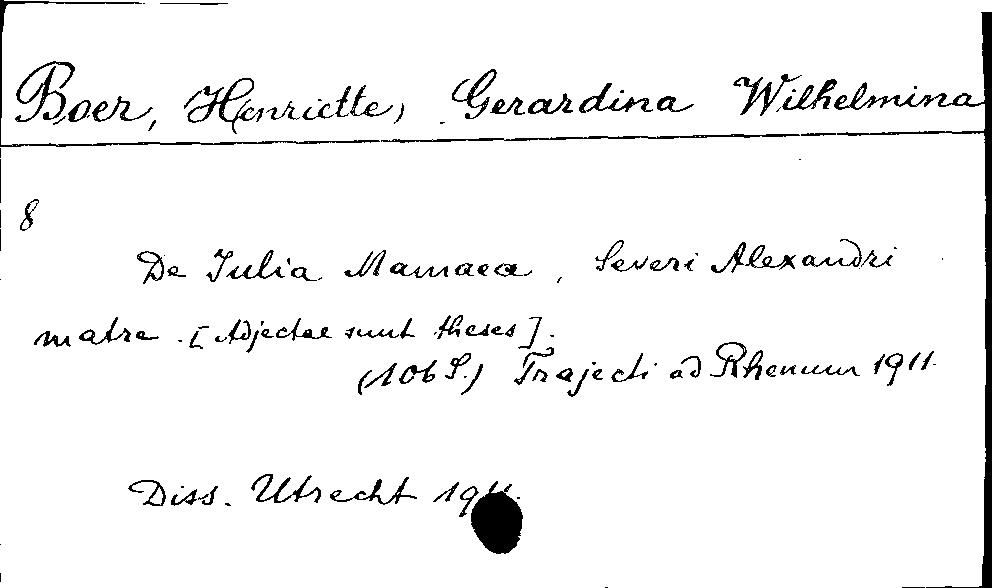 Boer, Henriette, Gerardina Wilhelmina
8
De Iulia Mamaea, Severi Alexandri
matre. [Adjectae sunt theses].
(106 S.) Trajecti ad Rhenum 1911.
Diss. Utrecht 1911.